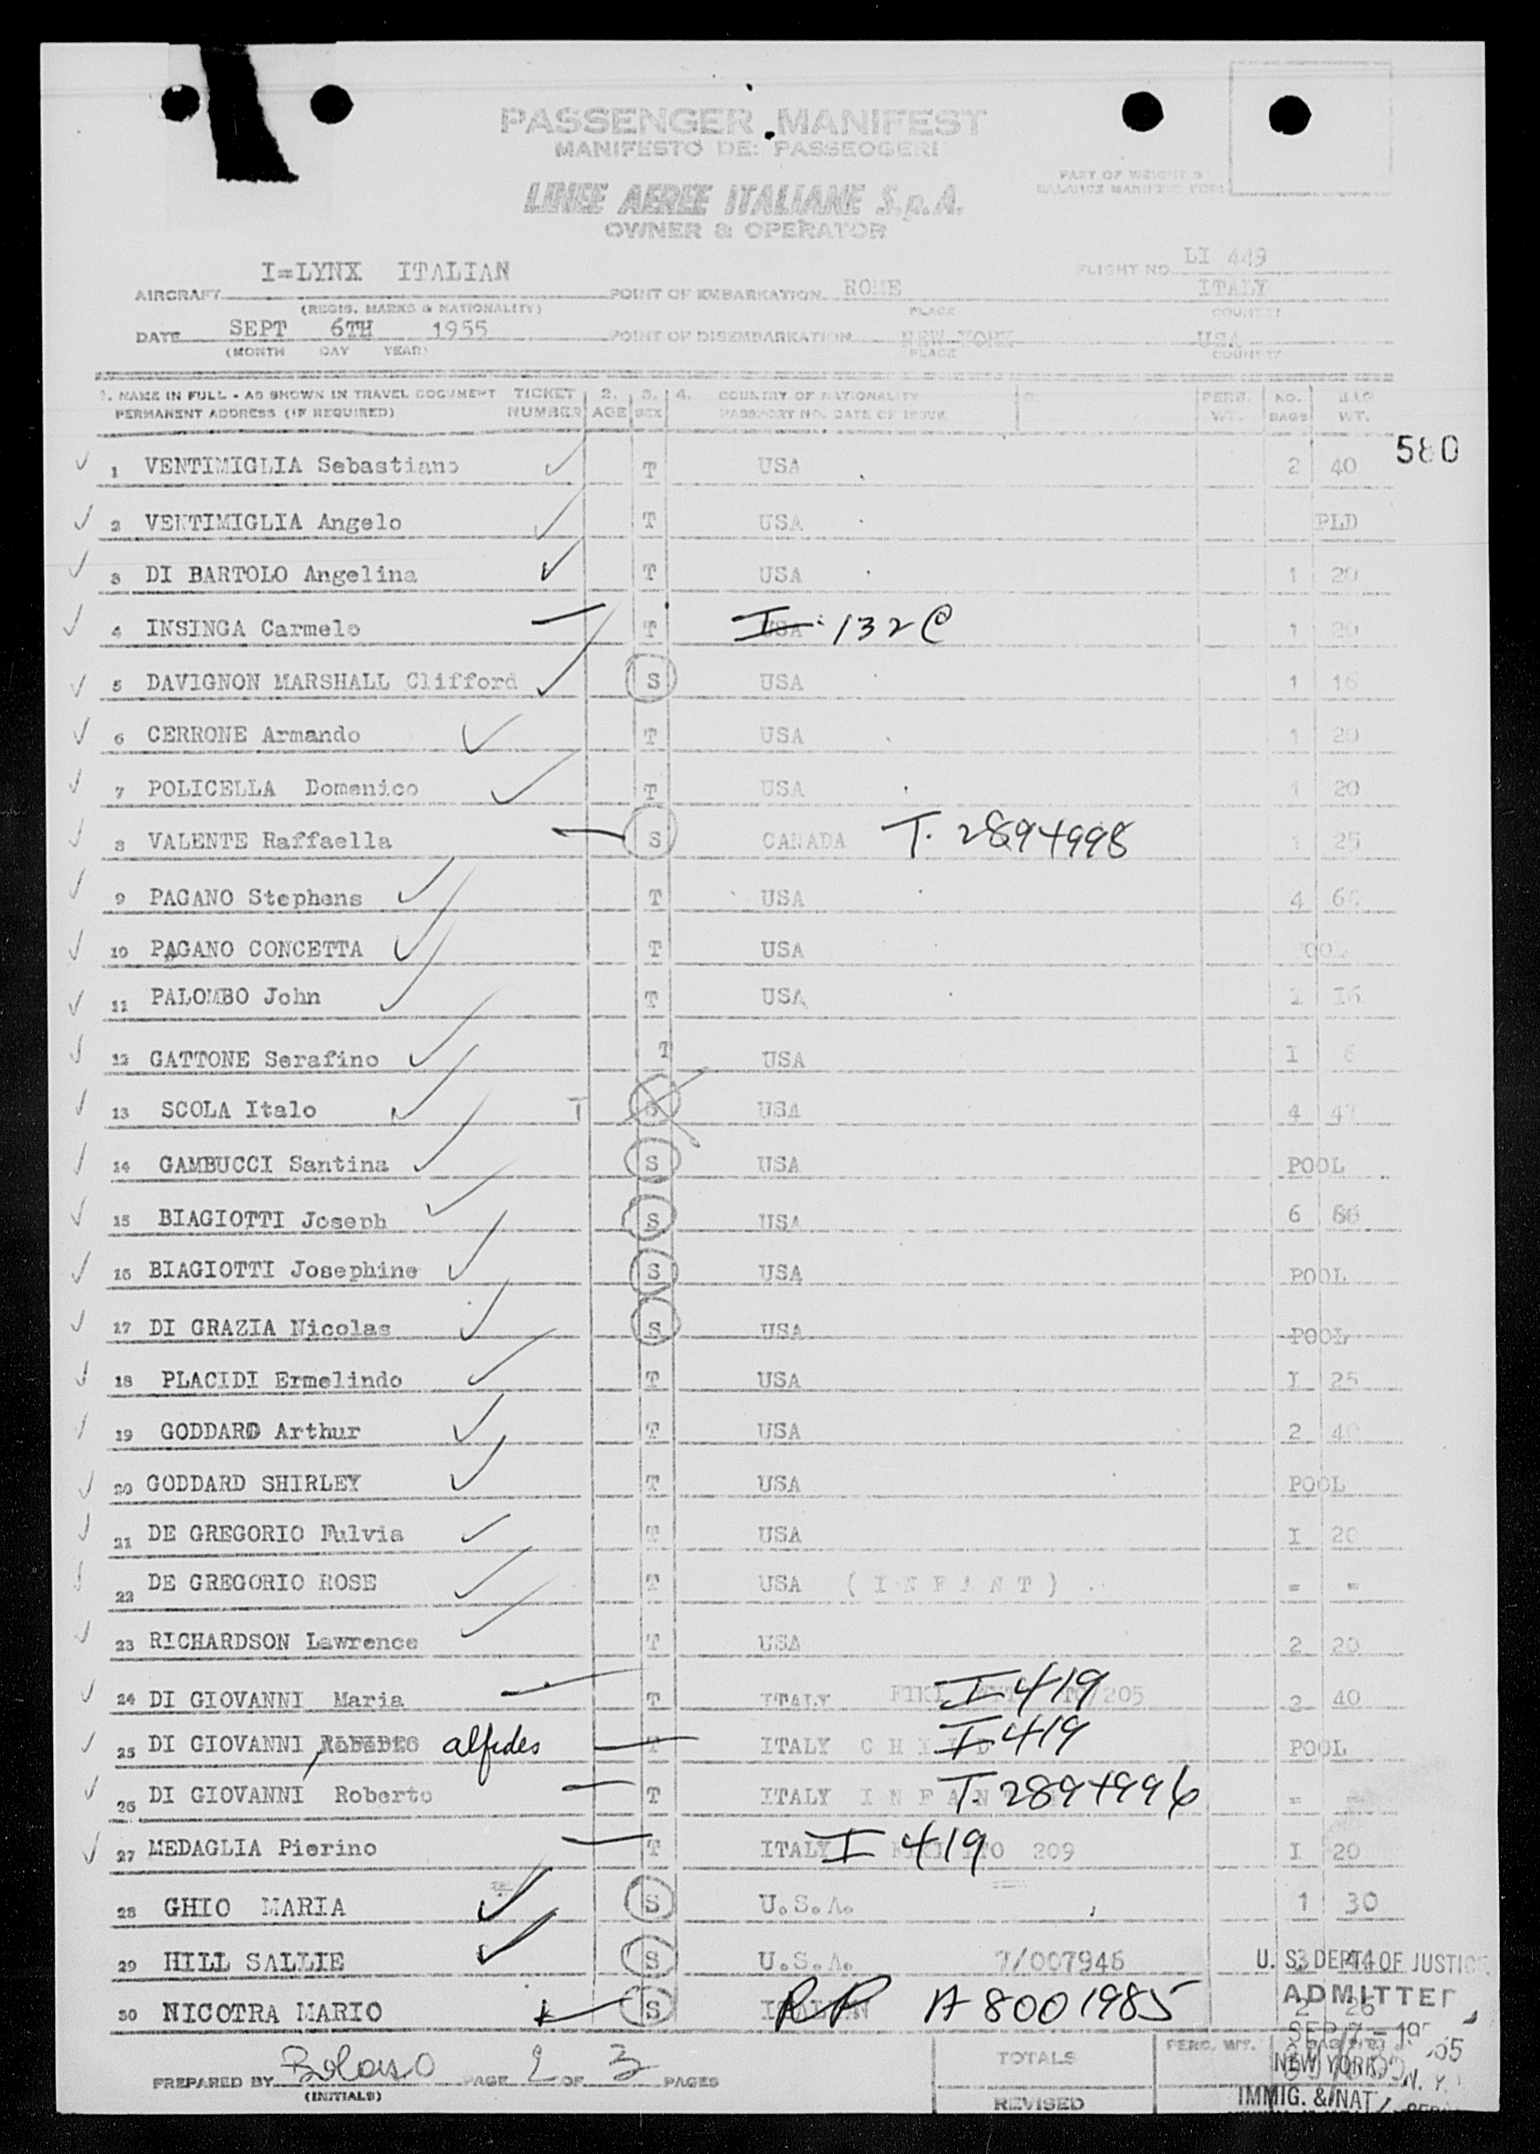 PASSENGER MANIFEST
MANIFESTO DEI PASSEGGERI
LINEE AEREE ITALIANE S.p.A.
OWNER & OPERATOR
PART OF WEIGHT &
BALANCE MANIFEST FORM
I=LYNX ITALIAN LI 449
AIRCRAFT POINT OF EMBARKATION ROME FLIGHT NO. ITALY
(REGIS. MARKS & NATIONALITY) PLACE COUNTRY
DATE SEPT 6TH 1955 POINT OF DISEMBARKATION NEW YORK USA
(MONTH DAY YEAR) PLACE COUNTRY
1. NAME IN FULL - AS SHOWN IN TRAVEL DOCUMENT TICKET 2. 3. 4. COUNTRY OF NATIONALITY PERS. NO. BAG
PERMANENT ADDRESS (IF REQUIRED) NUMBER AGE SEX PASSPORT NO. DATE OF ISSUE WT. BAGS WT.
580
1 VENTIMIGLIA Sebastiano T USA 2 40
2 VENTIMIGLIA Angelo T USA PLD
3 DI BARTOLO Angelina T USA 1 20
4 INSINGA Carmelo T USA I-132C 1 20
5 DAVIGNON MARSHALL Clifford S USA 1 16
6 CERRONE Armando T USA 1 20
7 POLICELLA Domenico T USA 1 20
8 VALENTE Raffaella S CANADA T. 2894998 1 25
9 PAGANO Stephens T USA 4
10 PAGANO CONCETTA T USA
11 PALOMBO John T USA 1 16
12 GATTONE Serafino T USA I
13 SCOLA Italo T S USA 4 47
14 GAMBUCCI Santina S USA POOL
15 BIAGIOTTI Joseph S USA 6
16 BIAGIOTTI Josephine S USA POOL
17 DI GRAZIA Nicolas S USA POOL
18 PLACIDI Ermelindo T USA I 25
19 GODDARD Arthur T USA 2 40
20 GODDARD SHIRLEY T USA POOL
21 DE GREGORIO Fulvia T USA I 20
22 DE GREGORIO ROSE T USA ( I N F A N T ) = =
23 RICHARDSON Lawrence T USA 2 20
24 DI GIOVANNI Maria T ITALY I 419 2 40
25 DI GIOVANNI alfedes T ITALY C H I L D I 419 POOL
26 DI GIOVANNI Roberto T ITALY I N F A N T T. 2894996 = =
27 MEDAGLIA Pierino T ITALY I 419 209 I 20
28 GHIO MARIA S U.S.A. 1 30
29 HILL SALLIE S U.S.A. 7/007946 3 44
30 NICOTRA MARIO S ITALIAN RP A8001985 2 26
U. S. DEPT OF JUSTICE
ADMITTED
SEP 7 -
NEW YORK, N. Y.
IMMIG. & NAT
PREPARED BY PAGE 2 OF 3 PAGES
(INITIALS)
TOTALS PERS. WT.
REVISED